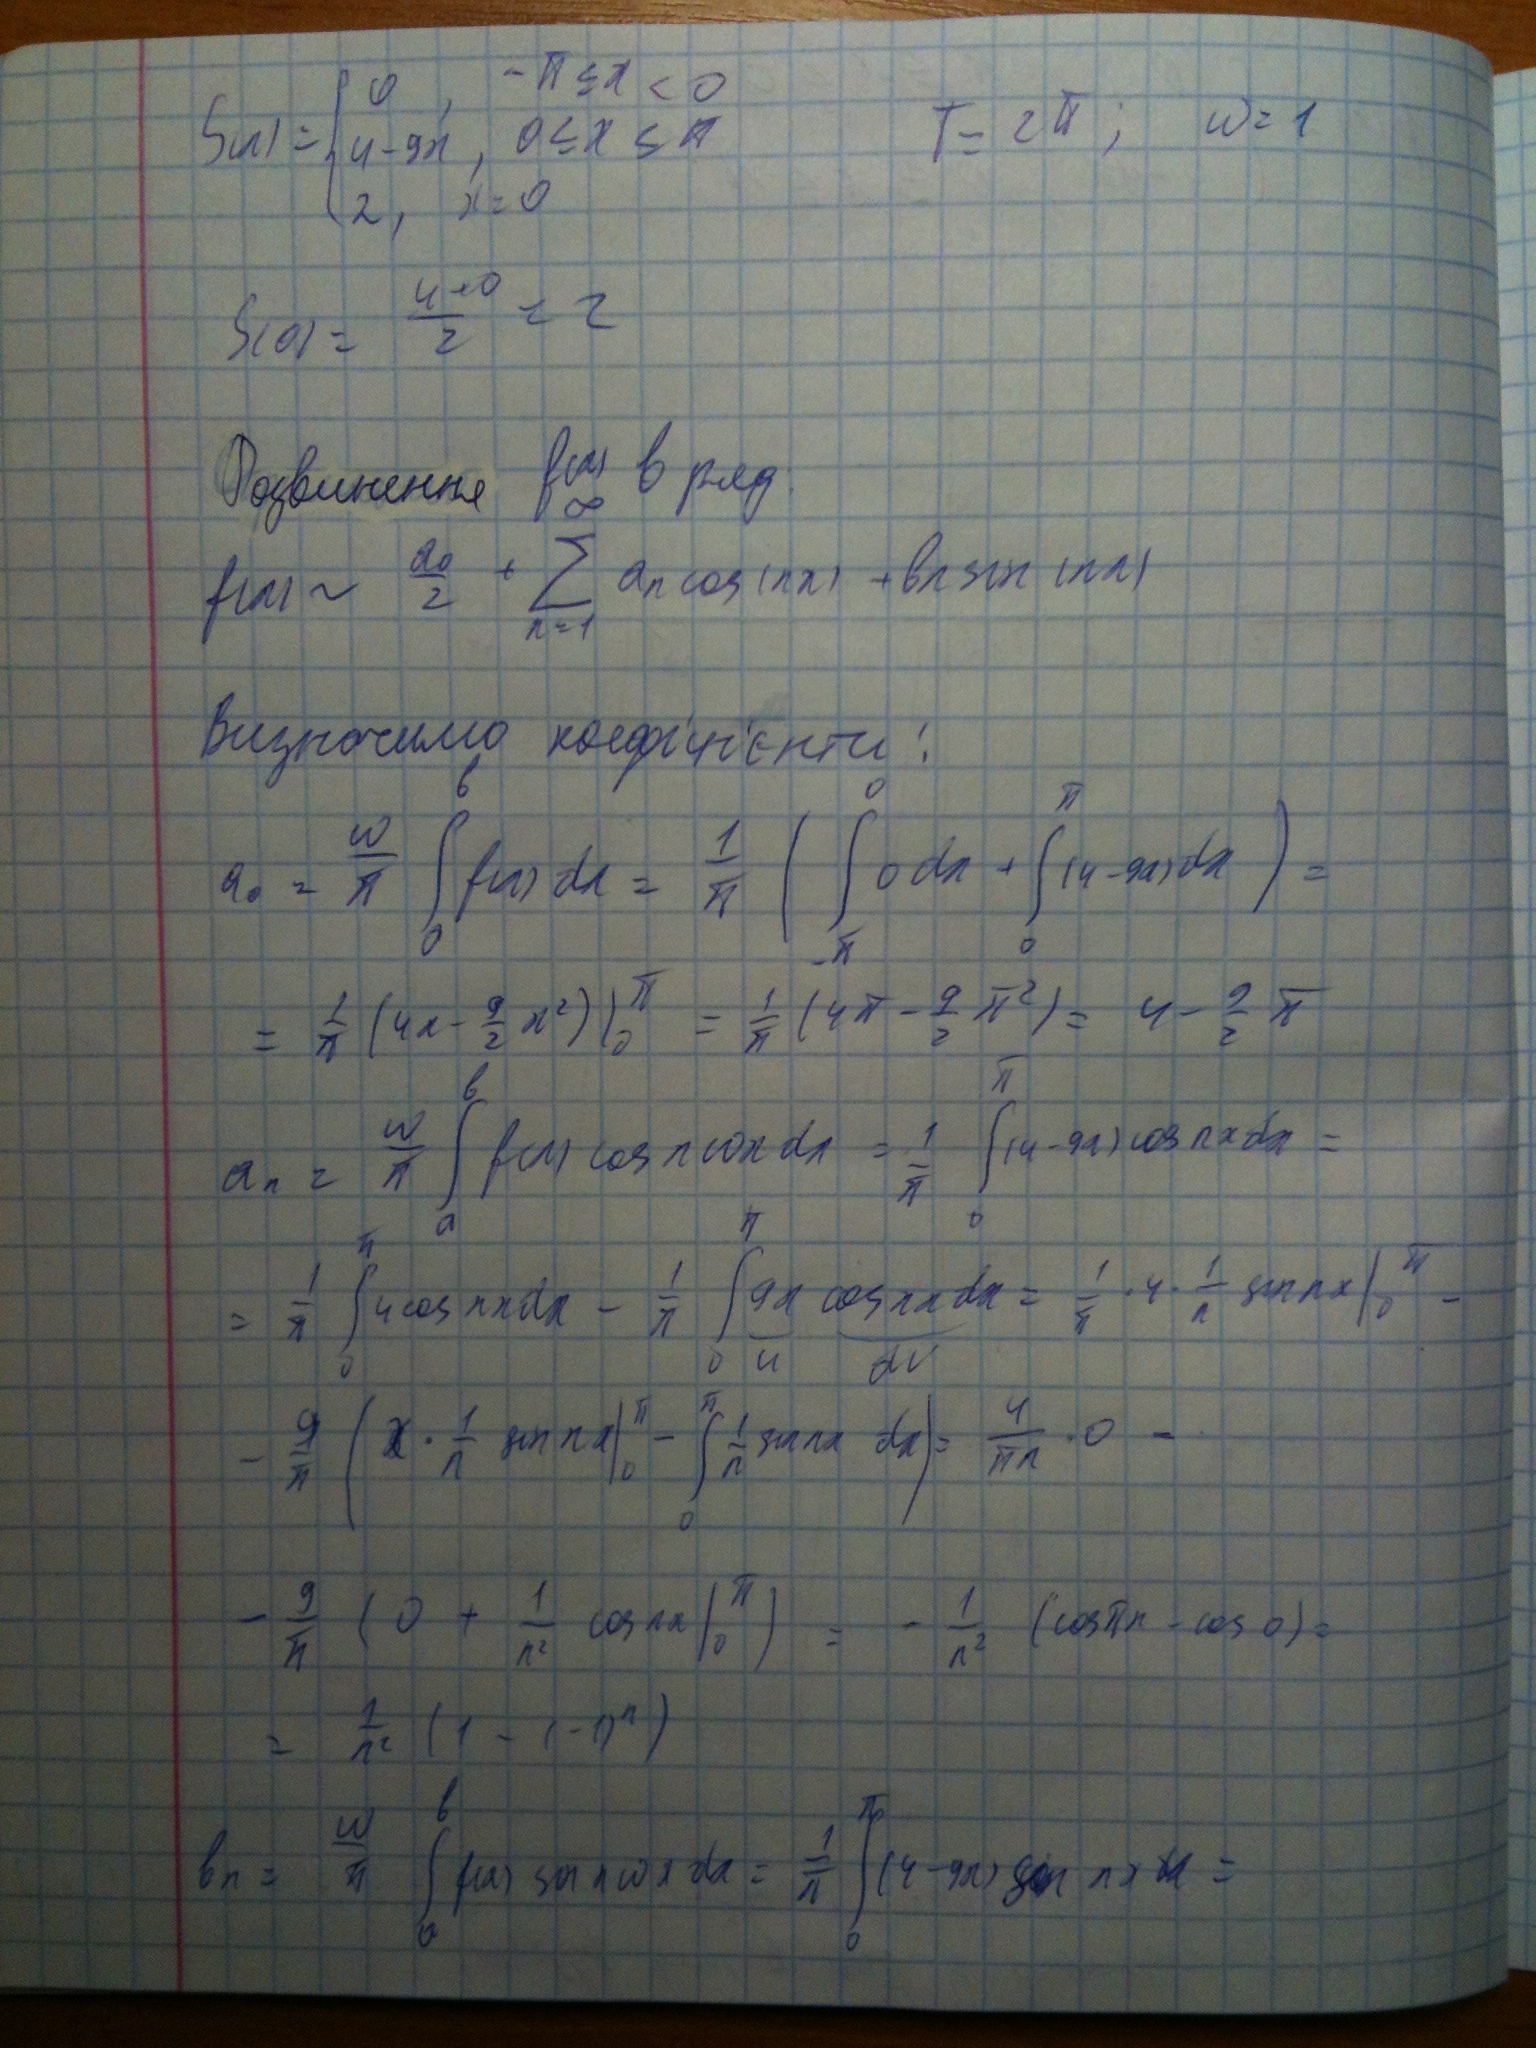 S(x) = { 0 , -π ≤ x < 0
4-9x , 0 ≤ x ≤ π
2, x=0
T = 2π ; w = 1
S(0) = (4+0)/2 = 2
Розвинення f(x) в ряд.
f(x) ~ a₀/2 + ∑_{n=1}^{∞} aₙ cos(nx) + bₙ sin(nx)
Визначимо коефіцієнти:
a₀ = w/π ∫₀^b f(x) dx = 1/π ( ∫_{-π}^0 0 dx + ∫₀^π (4-9x) dx ) =
= 1/π (4x - 9/2 x²) |₀^π = 1/π (4π - 9/2 π²) = 4 - 9/2 π
aₙ = w/π ∫_a^b f(x) cos nωx dx = 1/π ∫₀^π (4-9x) cos nx dx =
= 1/π ∫₀^π 4 cos nx dx - 1/π ∫₀^π 9x cos nx dx = 1/π · 4 · 1/n sin nx |₀^π -
u dv
- 9/π ( x · 1/n sin nx |₀^π - ∫₀^π 1/n sin nx dx ) = 4/πn · 0 -
- 9/π ( 0 + 1/n² cos nx |₀^π ) = - 1/n² (cos πn - cos 0) =
= 1/n² (1 - (-1)ⁿ)
bₙ = w/π ∫_a^b f(x) sin nωx dx = 1/π ∫₀^π (4-9x) sin nx dx =